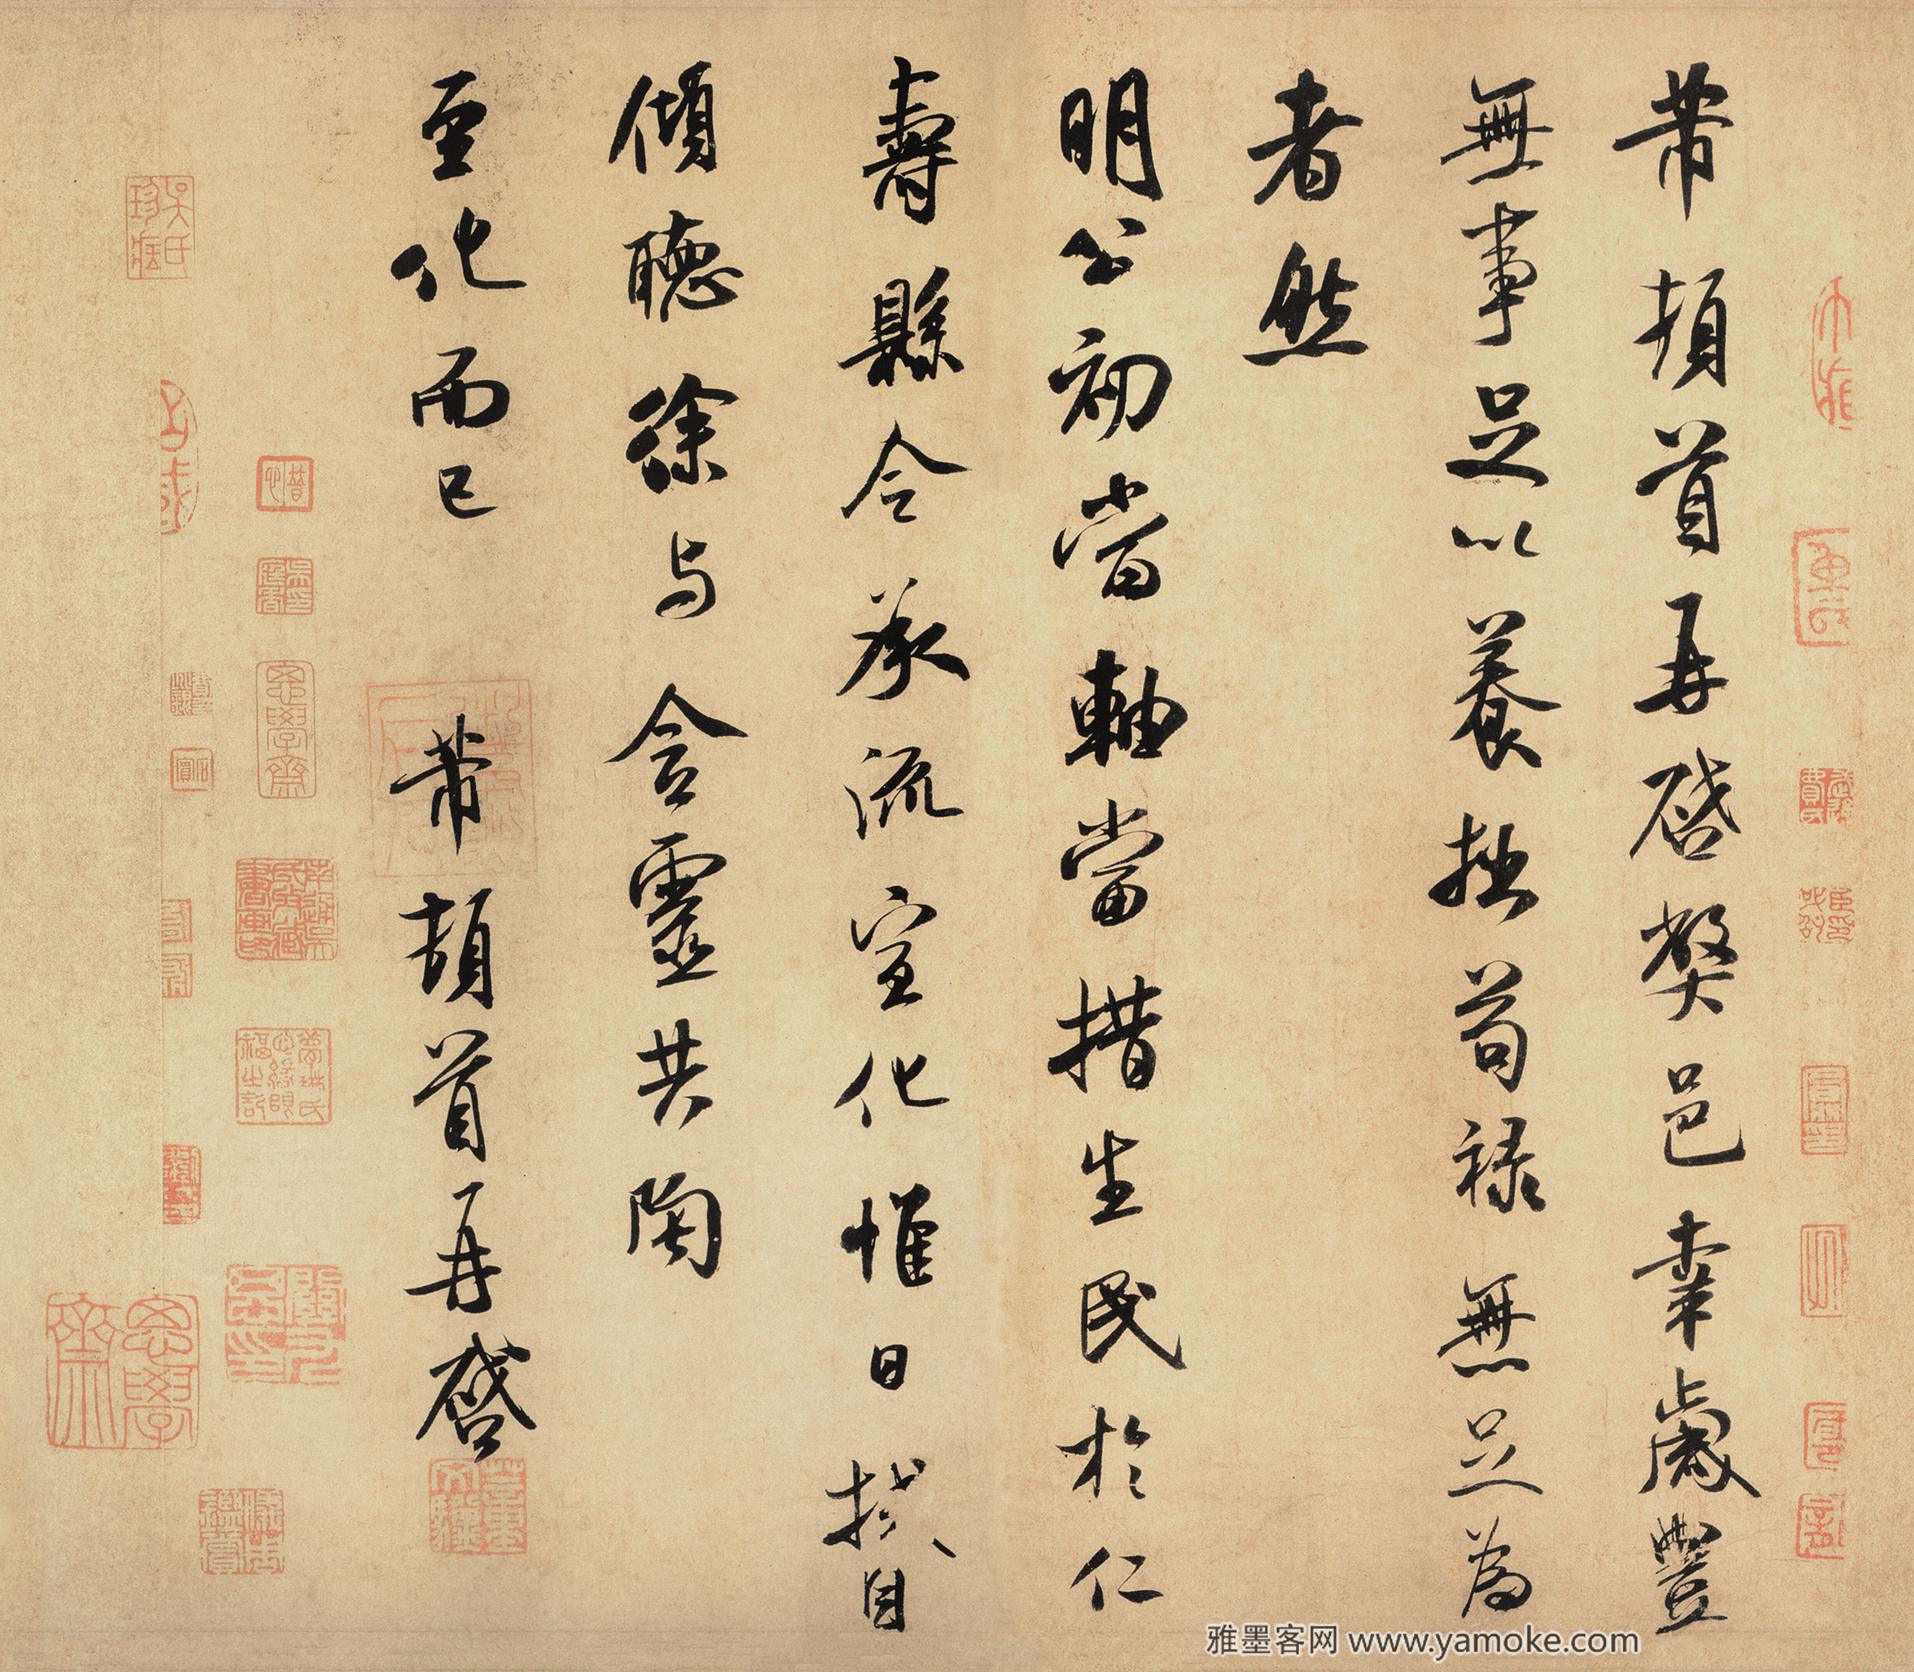 芾頓首再啓弊邑幸歲豐
無事足以養拙苟禄無足為
者然
明公初當軸當措生民於仁
壽縣令承流宣化惟日拭目
傾聽徐與含靈共陶
至化而已　芾頓首再啓
思學齋
吳氏珍藏
思學齋
雅墨客网 www.yamoke.com